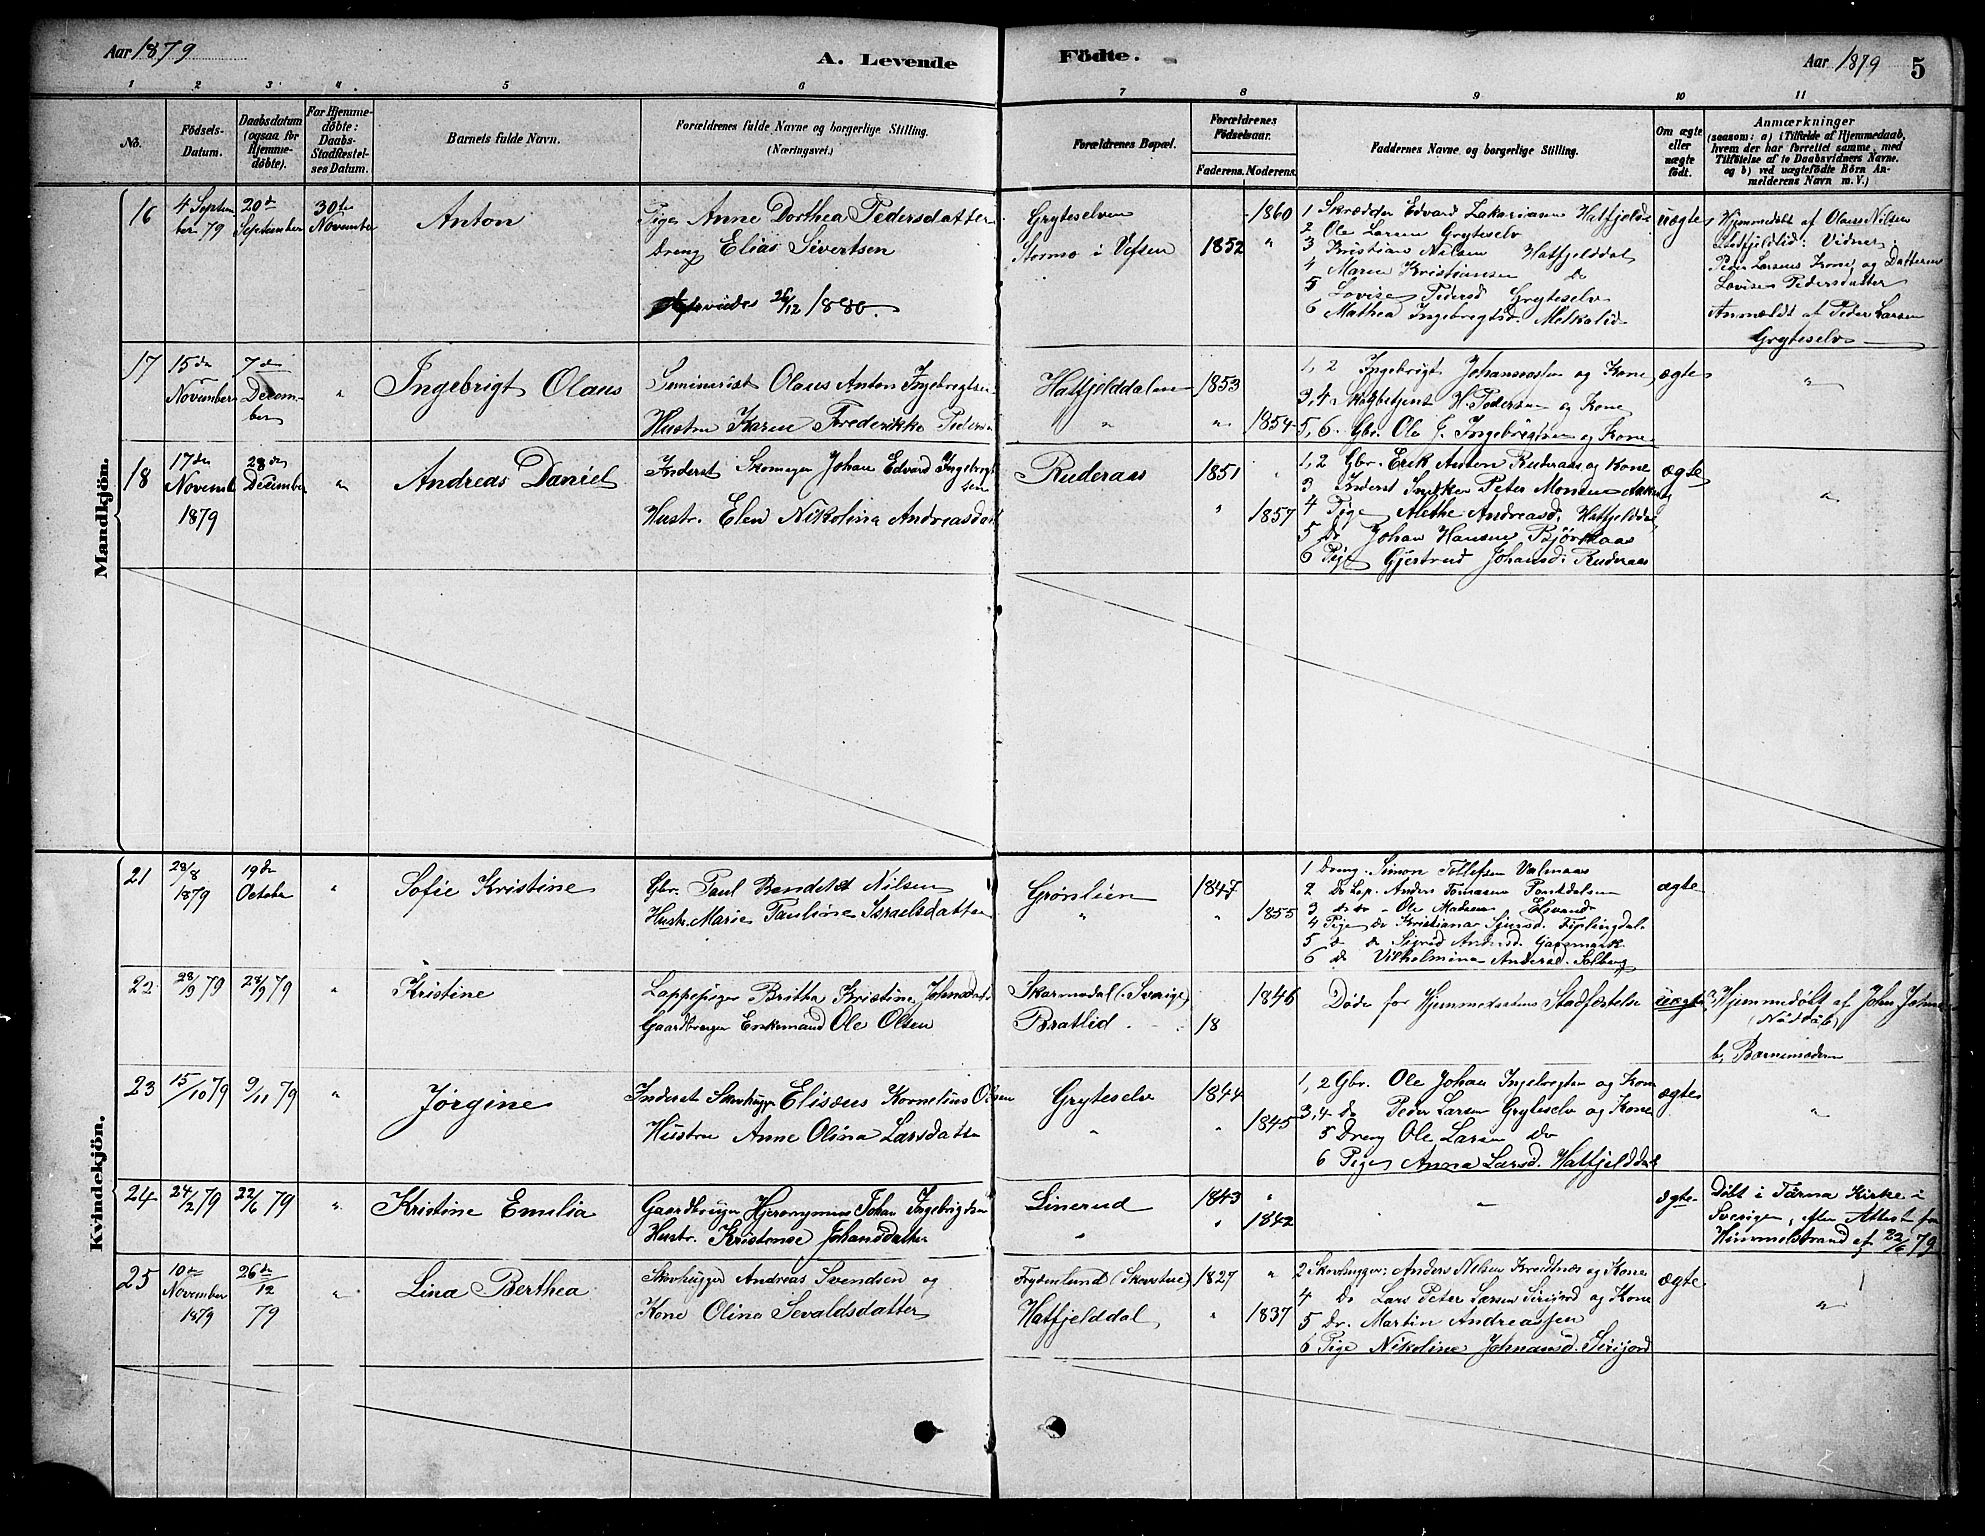 Aar 1879
A. Levende
Födte.
Aar 1879
5
1 2 3 4 5 6 7 8 9 10 11
No.
Födsels-Datum.
Daabsdatum (ogsaa for Hjemmedöbte).
For Hjemmedöbte: Daabs-Stadfæstelses Datum.
Barnets fulde Navn.
Forældrenes fulde Navne og borgerlige Stilling. (Næringsvei.)
Forældrenes Bopæl.
Forældrenes Födselsaar.
Faderens. Moderens.
Faddernes Navne og borgerlige Stilling.
Om ægte eller uægte födt.
Anmærkninger
(saasom: a) i Tilfælde af Hjemmedaab, hvem der har forrettet samme, med Tilföielse af to Daabsvidners Navne. og b) ved uægtefödte Börn Anmelderens Navn m. V.)
Mandkjön.
16
4 September 79
20de September
30te November
Anton
Pige Anne Dorthea Pedersdatter
Dreng Elias Sivertsen
26/12 1880.
Gryteselven
Stormo i Vefsen
1860
1852 "
1 Skrædder Edvard Zakariasen Hatfjeldd.
2 Ole Larsen Gryteselv
3 Kristian Nilsen Hatfjelddal
4 Maren Kristiansen Do
5 Lovise Pedersd Gryteselv
6 Mathea Ingebrigtsd.
uægte
Hjemmedøbt af Olaus Nilsen
Vidner:
Peder Larsens Kone og Datteren
Lovise Pedersdatter
Anmældt af Peder Larsen
Gryteselv
17
15de November
7de December
"
Ingebrigt Olaus
Seminarist Olaus Anton Ingebrigtsen
Hustru Karen Frederikke Pedersen
Hatfjelddalen
"
1853
" 1854
1, 2 Ingebrigt Johansen og Kone
3, 4 Skogbetjent H. Pedersen og Kone
5, 6. Gbr. Ole G. Ingebrigtsen og Kone
ægte
"
18
17de November 1879
28de December
"
Andreas Daniel
Inderst Skomager Johan Edvard Ingebrigtsen
Hustr. Elen Nikolina Andreasdat
Ruderaas
1851 "
" 1857
1, 2 Gbr. Erik Anton Ruderaas og Kone
3 Inderst Snedker Peter Monsen
4 Pige Alethe Andreasd. Hatfjelddal
5 Do Johan Hansen Bjørkaas
6 Pige Gjertrud Johansd: Ruderaas
ægte
"
Kvindekjön.
21
28/8 1879
19de October
"
Sofie Kristine
Gbr. Paul Bendikt Nilsen
Hustr. Marie Pauline Israelsdatter
Grønlien
"
1847
" 1855
1 Dreng Simon Tollefsen Valmaas
2 Do Lap. Anders Tomasen
3 do do Ole Madsen Elvand
4 Pige Do Kristiana Sjursd. Fiplingdal
5 d d Sigrid Andersd.
6 do Vilhelmina Andersd. Solberg
ægte
22
28/9 79
28/9 79
"
Kristine
Lappepige Britha Kristine Johnsdat
Gaardbruger Enkemand Ole Olsen
Skarmodal (Sverige)
Bratlid
1846
18
Døde for Hjemmedaabens Stadfæstelse
uægte
a, Hjemmedøbt af John Johns
(Nøddåb)
b, Barnemoderen
23
15/10 79
9/11 79
"
Jørgine
Inderst Skovhugger Elisæus Kornelius Olsen
Hustru Anne Olina Larsdatter
Gryteselv
"
1844
" 1845
1, 2 Gbr. Ole Johan Ingebrigtsen og Kone
3, 4 do Peder Larsen Gryteselv og Kone
5 Dreng Ole Larsen Do
6 Pige Anna Larsd. Hatfjelddal
ægte
"
24
24/2 79
22/6 79
"
Kristine Emilia
Gaardbruger Hjeronymus Johan Ingebrigtsen
Hustr. Kristense Johansdatter
Linerud
"
1843 "
" 1842
"
ægte
Døbt i Tärna Kirke i
Sverige, efter Attest fra
Himmelstrand af 22/6 79
25
10de November 1879
26de/12 79
"
Lina Berthea
Skovhugger Andreas Svendsen og
Kone Olina Sevaldsdatter
Frydenlund (Skovstue)
Hatfjelddal
1827 "
" 1837
2 Skovhugger: Anders Nilsen Kredtnæs og Kone
4 Do Lars Peter Larsen Sirijord og Kone
5 Dr. Martin Andreassen
6 Pige Nikoline Johnansd. Sirijord
ægte
"